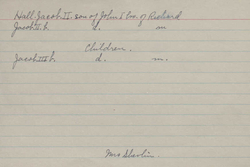 Hall, Jacob II. son of John & bro. of Richard
Jacob II b. d. m
Children.
Jacob III b. d. m.
Mrs